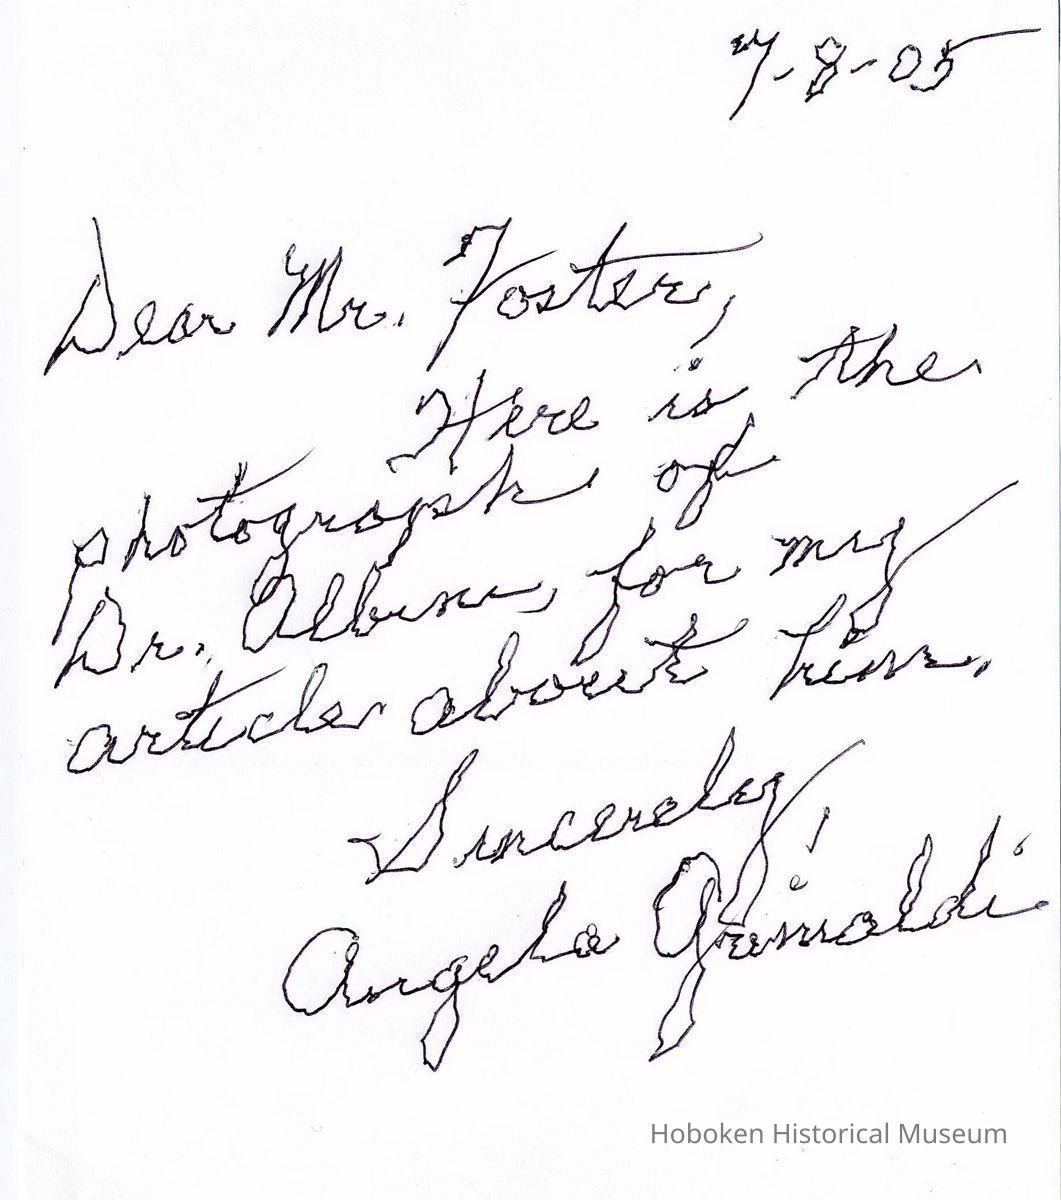 7-8-05
Dear Mr. Foster,
Here is the
photograph of
Dr. Albini, for my
article about him.
Sincerely,
Angela Grimaldi
Hoboken Historical Museum